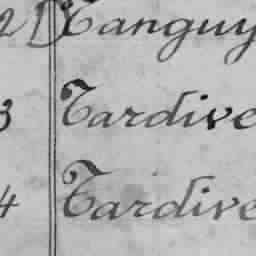 2 Tanguy
3 Tardive
4 Tardive